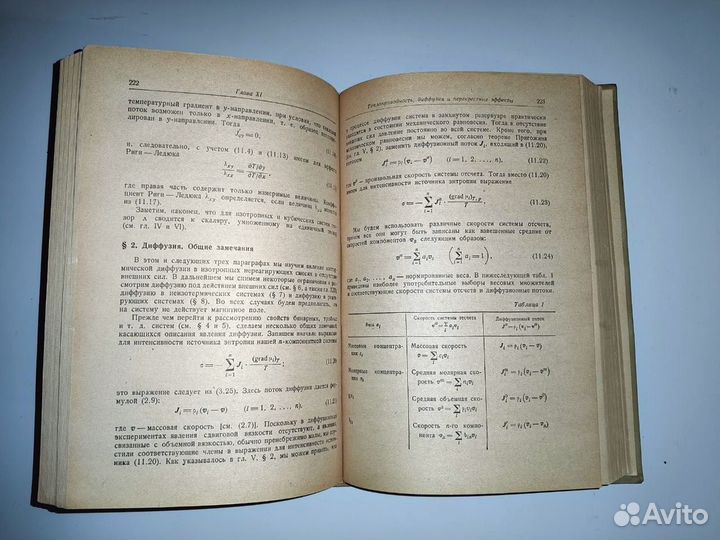 222
Глава XI
температурный градиент в y-направлении, при условии, что тепловой
поток возможен только в x-направлении, т. е. образец
изолирован в y-направлении. Тогда
и, следовательно, с учетом (11.4) и (11.13) имеем для эффекта
Риги — Ледюка
где правая часть содержит только измеримые величины.
циент Риги — Ледюка λxy определяется, если величина λxx
из (11.17).
Заметим, наконец, что для изотропных и кубических систем
зор λ сводится к скаляру, умноженному на единичный
(см. гл. IV и VI).
§ 2. Диффузия. Общие замечания
В этом и следующих трех параграфах мы изучим явление
мической диффузии в изотропных нереагирующих смесях в отсутствие
внешних сил. В дальнейшем мы снимем некоторые ограничения и
смотрим диффузию под действием внешних сил (см. § 6, а также
диффузию в неизотермических системах (§ 7) и диффузию в
рующих системах (§ 8). Во всех случаях будем предполагать, что
на систему не действует магнитное поле.
Прежде чем перейти к рассмотрению свойств бинарных, тройных
и т. д. систем (см. § 4 и 5), сделаем несколько общих замечаний,
касающихся описания явления диффузии. Запишем вначале выражение
для интенсивности источника энтропии нашей n-компонентной системы
σ = — ∑ Ji · (grad μi)T,p / T, (11.20)
это выражение следует из (3.25). Здесь поток диффузии дается
мулой (2.9):
Ji = ρi (vi — v) (i = 1, 2, ..., n). (11.21)
где v — массовая скорость [см. (2.7)]. Поскольку в диффузионных
экспериментах явления сдвиговой вязкости отсутствуют, а явления,
связанные с объемной вязкостью, обычно пренебрежимо малы, мы
стили соответствующие члены в выражении для интенсивности
ника (11.20). Как указывалось в гл. V, § 2, мы можем принять, что
Теплопроводность, диффузия и перекрестные эффекты
223
в процессе диффузии система в замкнутом резервуаре практически
находится в состоянии механического равновесия. Тогда в отсутствие
внешних сил давление постоянно во всей системе. Кроме того, при
этих условиях мы можем, согласно теореме Пригожина
(см. гл. V, § 2), заменить диффузионный поток Ji, входящий в (11.20),
(i = 1, 2, ..., n), (11.22)
где vª — произвольная скорость системы отсчета. Тогда вместо (11.20)
имеем для интенсивности источника энтропии выражение
(11.23)
Мы будем использовать различные скорости системы отсчета,
причем все они могут быть записаны как взвешенные средние от
скоростей компонентов vi следующим образом:
vª = ∑ ai vi (∑ ai = 1), (11.24)
где a1, a2, ..., an — нормированные веса. В нижеследующей табл. 1
приведены наиболее употребительные выборы весовых множителей
и соответствующие скорости системы отсчета и диффузионные потоки.
Таблица 1
Веса ai
Скорость системы отсчета
vª = ∑ ai vi
Диффузионный поток
Массовые концентрации ci
Массовая скорость
v = ∑ ci vi
Ji = ρi (vi — v)
Молярные концентрации ni
Средняя молярная скорость
Средняя объемная скорость
Скорость n-го компонента